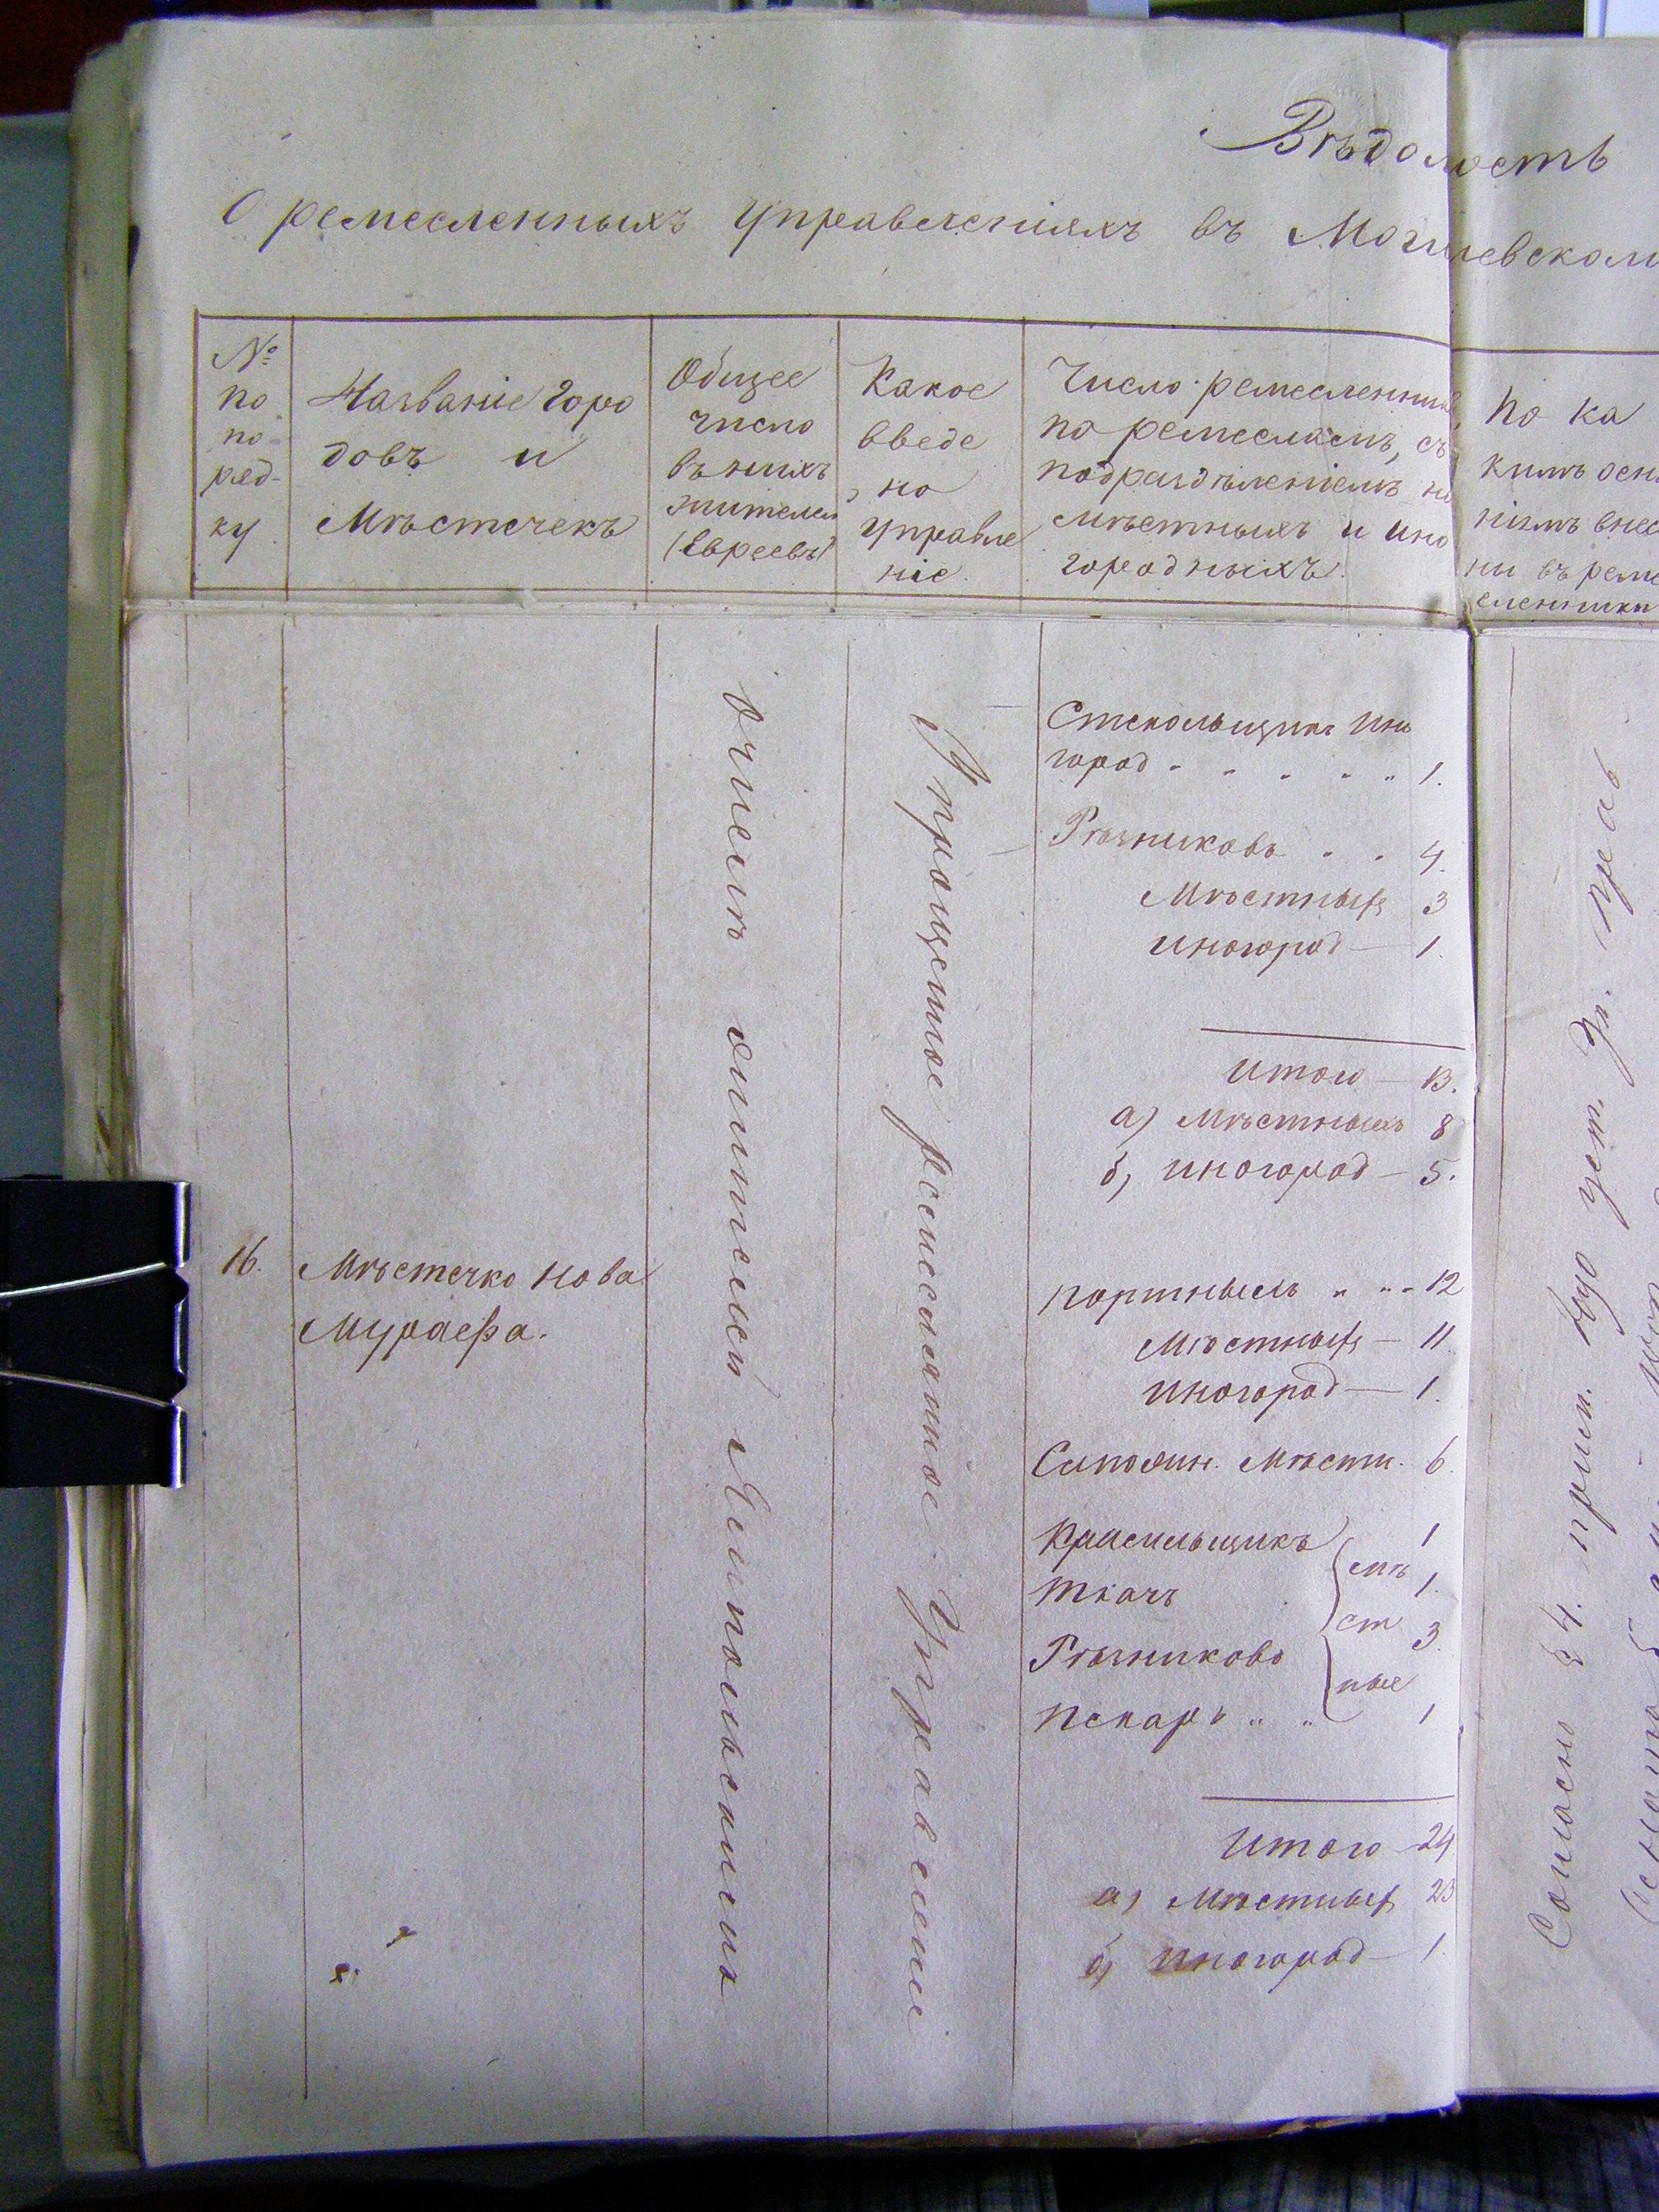 Вѣдомость
О ремесленныхъ Управленіяхъ въ Могилевскомъ
№
по
по-
ряд-
ку
Названіе Горо
довъ и
Мѣстечекъ
Общее
число
въ нихъ
жителей
(Евреевъ)
Какое
введе
но
Управле
ніе.
Число ремесленник
по ремесламъ, съ
подраздѣленіемъ на
мѣстныхъ и ино
городныхъ.
По ка
кимъ осн
ніямъ внес
ны въ реме
сленники
О числѣ жителей
Упрощенное ремесленное Управленіе
Стекольщикъ Ино
город - - - - „ 1.
Рѣзниковъ - - 4.
Мѣстныхъ 3
Иногород — 1.
Итого — 13.
а) Мѣстныхъ 8
б) Иногород — 5.
16.
Мѣстечко Нова
Мурафа.
Портныхъ „ „ - 12
Мѣстныхъ — 11.
Иногород — 1.
Сапожн. Мѣстн. 6.
Красильщикъ 1
Ткачъ 1.
Рѣзниковъ 3.
Пекарь „ „ 1
мѣ
ст
ные
Итого 24
а) Мѣстныхъ 23
б) Иногород — 1.
Согласно § 4. прим.